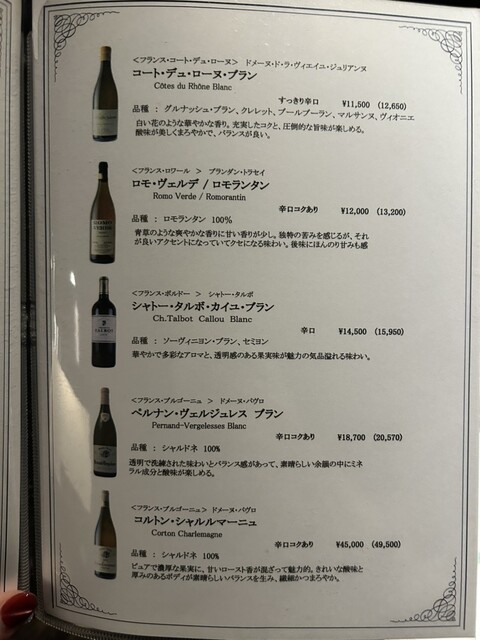 <フランス・コート・デュ・ローヌ> ドメーヌ・ド・ラ・ヴィエイユ・ジュリアンヌ
コート・デュ・ローヌ・ブラン
Côtes du Rhône Blanc
すっきり辛口 ¥11,500 (12,650)
品種 : グルナッシュ・ブラン、クレレット、ブールブーラン、マルサンヌ、ヴィオニエ
白い花のような華やかな香り。充実したコクと、圧倒的な旨味が楽しめる。
酸味が美しくまろやかで、バランスが良い。
<フランス・ロワール > ブランダン・トラセイ
ロモ・ヴェルデ / ロモランタン
Romo Verde / Romorantin
辛口コクあり ¥12,000 (13,200)
品種 : ロモランタン 100%
青草のような爽やかな香りに甘い香りが少し。独特の苦みを感じるが、それ
が良いアクセントになっていてクセになる味わい。後味にほんのり甘みも感
<フランス・ボルドー > シャトー・タルボ
シャトー・タルボ・カイユ・ブラン
Ch.Talbot Callou Blanc
辛口 ¥14,500 (15,950)
品種 : ソーヴィニヨン・ブラン、セミヨン
華やかで多彩なアロマと、透明感のある果実味が魅力の気品溢れる味わい。
<フランス・ブルゴーニュ > ドメーヌ・パヴロ
ペルナン・ヴェルジュレス ブラン
Pernand-Vergelesses Blanc
辛口コクあり ¥18,700 (20,570)
品種 : シャルドネ 100%
透明で洗練された味わいとバランス感があって、素晴らしい余韻の中にミネ
ラル成分と酸味が楽しめる。
<フランス・ブルゴーニュ> ドメーヌ・パヴロ
コルトン・シャルルマーニュ
Corton Charlemagne
辛口コクあり ¥45,000 (49,500)
品種 : シャルドネ 100%
ピュアで濃厚な果実に、甘いロースト香が混ざって魅力的。きれいな酸味と
厚みのあるボディが素晴らしいバランスを生み、繊細かつまろやか。